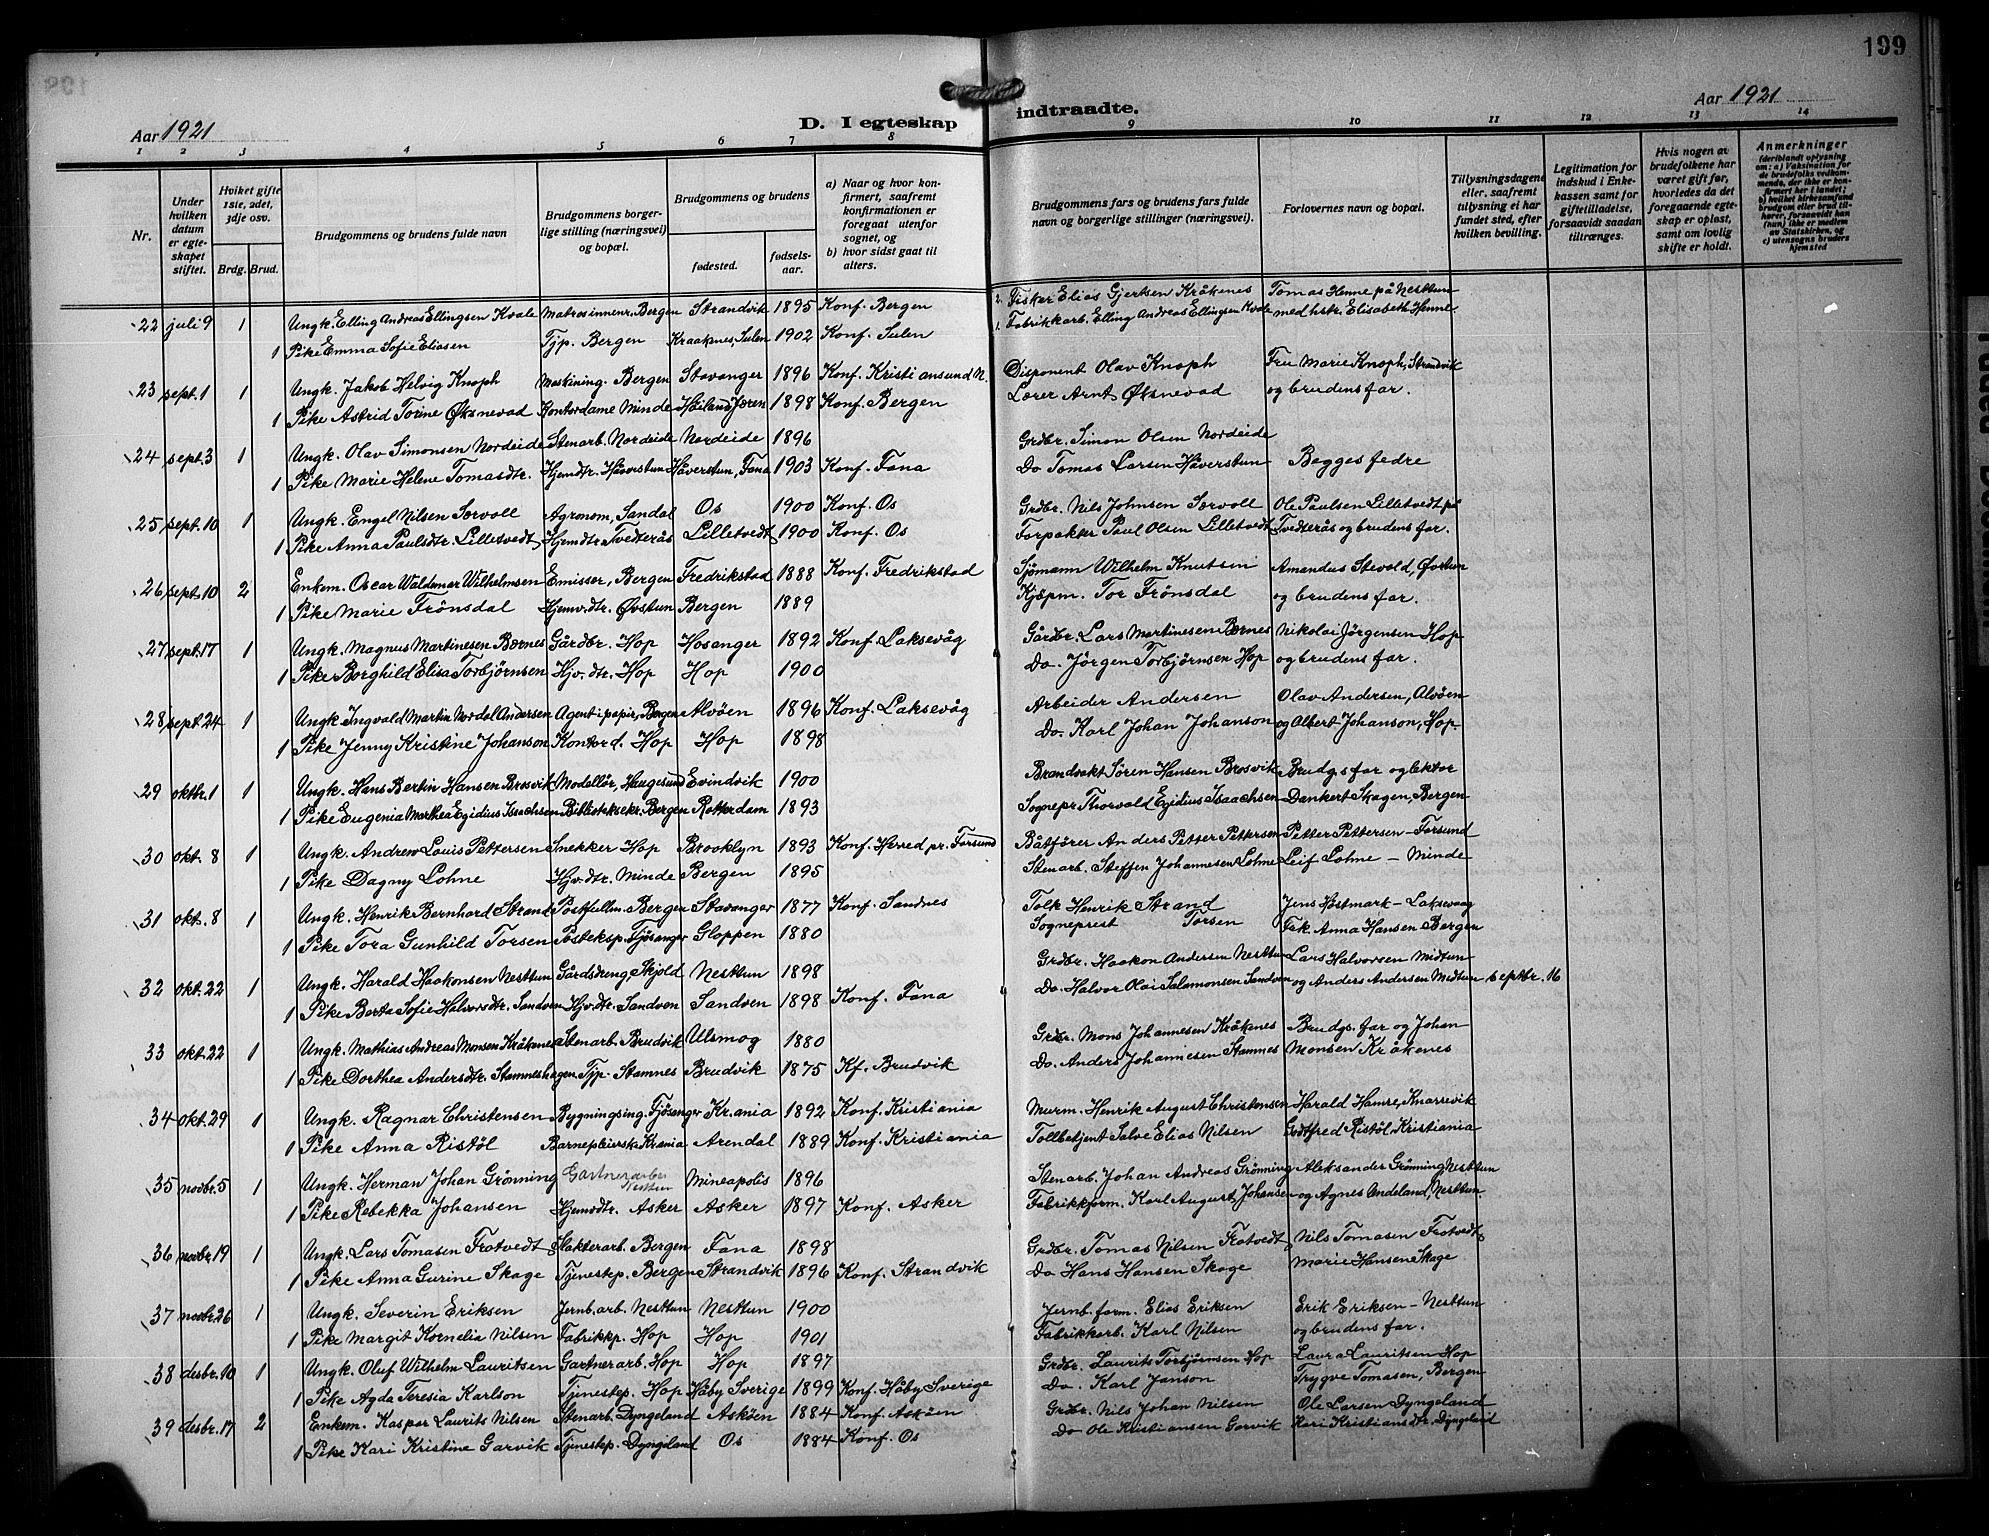 199
Aar 1921
D. I egteskap
indtraadte.
Aar 1921
1 2 3 4 5 6 7 8 9 10 11 12 13 14
Nr.
Under hvilken datum er egteskapet stiftet.
Hviket gifte 1ste, 2det, 3dje osv.
Brdg. Brud.
Brudgommens og brudens fulde navn
Brudgommens borgerlige stilling (næringsvei) og bopæl.
Brudgommens og brudens
fødested.
fødselsaar.
a) Naar og hvor konfirmert, saafremt konfirmationen er foregaat utenfor sognet, og
b) hvor sidst gaat til alters.
Brudgommens fars og brudens fars fulde navn og borgerlige stillinger (næringsvei).
Forlovernes navn og bopæl.
Tillysningsdagene eller, saafremt tillysning ei har fundet sted, efter hvilken bevilling.
Legitimation for indskud i Enkekassen samt for giftetilladelse, forsaavidt saadan tiltrænges.
Hvis nogen av brudefolkene har været gift før, hvorledes da det foregaaende egteskap er opløst, samt om lovlig skifte er holdt.
Anmerkninger (deriblandt oplysning om: a) Vaksination for de brudefolks vedkommende, der ikke er konfirmert her i landet; b) hvilket kirkesamfund brudgom eller brud tilhører, forsaavidt han (hun) ikke er medlem av Statskirken, og c) utensogns bruders hjemsted
22 juli 9 1 Ungk. Elling Andreas Ellingsen Kvale Matrosinnenr. Bergen Strandvik 1895 Konf. Bergen 2. Fisker Elias Gjertsen Kråkenes Tomas Henne på Nesttun
1 Pike Emma Sofie Eliasen Tjp. Bergen Kraaknes, Sulen 1902 Konf. Sulen 1. Fabrikkarb. Elling Andreas Ellingsen Kvale med hstr. Elisabeth Henne.
23 sept. 1 1 Ungk. Jakob Helvig Knoph Maskining. Bergen Stavanger 1896 Konf. Kristiansund N. Disponent Olav Knoph Fru Marie Knoph, Strandvik
1 Pike Astrid Torine Øksnevad Kontordame Minde Høiland Jæren 1898 Konf. Bergen Lærer Arnt Øksnevad og brudens far.
24 sept. 3 1 Ungk. Olav Simonsen Nordeide Stenarb. Nordeide Nordeide 1896 Grdbr. Simon Olsen Nordeide
1 Pike Marie Helene Tomasdtr. Hjemdtr. Håverstun Håverstun, Fana 1903 Konf. Fana Do Tomas Larsen Håverstun Begges fedre
25 sept. 10 1 Ungk. Engel Nilsen Særvoll Agronom, Sandal Os 1900 Konf. Os Grdbr. Nils Johnsen Særvoll Ole Paulsen Lilletvedt på
1 Pike Anna Paulsdtr. Lilletvedt Hjemdtr. Tvedterås Lilletvedt 1900 Konf. Os Forpakter Paul Olsen Lilletvedt Tvedterås og brudens far.
26 sept. 10 2 Enkem. Oscar Waldemar Wilhelmsen Emissær, Bergen Fredrikstad 1888 Konf. Fredrikstad Sjömann Wilhelm Knutsen Amandus Stevold, Øvstun
1 Pike Marie Frönsdal Hjemv.dtr. Øvstun Bergen 1889 Kjöpm. Tor Frönsdal og brudens far.
27 sept. 17 1 Ungk. Magnus Martinesen Bærnes Gårdbr. Hop Hosanger 1892 Konf. Laksevåg Gårdbr. Lars Martinesen Bærnes Nikolai Jörgensen Hop
1 Pike Borghild Elisa Torbjörnsen Hjv. dtr. Hop Hop 1900 Do. Jörgen Torbjørnsen Hop og brudens far.
28 sept. 24 1 Ungk Ingvald Martin Nordal Andersen Agent i papir, Bergen Alvöen 1896 Konf. Laksevåg Arbeider Andersen Olav Andersen, Alvöen
1 Pike Jenny Kristine Johanson Kontord. Hop Hop 1898 Do. Karl Johan Johanson og Albert Johanson, Hop.
29 oktbr. 1 1 Ungk. Hans Bertin Hansen Brosvik Modellör, Haugesund Evindvik 1900 Brandvakt Sören Hansen Brosvik Brudgs far og lektor
1 Pike Eugenia Marthea Egidius Isaachsen Biblioteksekr. Bergen Rotterdam 1893 Sognepr. Thorvald Egidius Isaachsen Dankert Skagen, Bergen
30 okt. 8 1 Ungk. Andrew Louis Pettersen Snekker Hop Brooklyn 1893 Konf. Herred pr. Farsund Båtförer Anders Petter Pettersen Petter Pettersen - Farsund
1 Pike Dagny Lohne Hjv.dtr. Minde Bergen 1895 Stenarb. Steffen Johannesen Lohne Leif Lohne - Minde
31 okt. 8 1 Ungk. Henrik Bernhard Strand Postfullm. Bergen Stavanger 1877 Konf. Sandnes Tolk Henrik Strand Jens Höstmark - Laksevaag
1 Pike Tora Gunhild Torsen Posteksp. Fjösanger Gloppen 1880 Sogneprest Torsen Frk. Anna Hansen Bergen
32 okt. 22 1 Ungk. Harald Haakonsen Nesttun Gårdsdreng Skjold Nesttun 1898 Grdbr. Haakon Andersen Nesttun Lars Halvorsen - Midtun
1 Pike Berta Sofie Halvorsdtr. Sandven Hjv.dtr. Sandven Sandven 1898 Konf. Fana Do. Halvor Olai Salamonsen Sandven og Anders Andersen Midtun 6 septbr. 16
33 okt. 22 1 Ungk. Mathias Andreas Monsen Kråkenes Stenarb. Brudvik Ulsmog 1880 Grdbr. Mons Johannesen Kråkenes Brudgs. far og Johan
1 Pike Dorthea Andersdtr. Stamneshagen. Tjp. Stamnes Brudvik 1875 Kf. Brudvik Do. Anders Johannesen Stamnes Monsen Kråkenes
34 okt. 29 1 Ungk. Ragnar Christensen Bygningsing. Fjösanger Kr.ania 1892 Konf. Kristiania Murm. Henrik August Christensen Harald Hamre, Knarrevik
1 Pike Anna Ristöl Barnepleierske Kr.ania Arendal 1889 Konf. Kristiania Tollbetjent Salve Elias Nilsen Godtfred Ristöl, Kristiania
35 novbr. 5 1 Ungk. Herman Johan Grönning Gartnerarbeider Nesttun Mineapolis 1896 Stenarb. Johan Andreas Grönning Aleksander Grönning Nesttun
1 Pike Rebekka Johansen Hjemvdtr. Asker Asker 1897 Konf. Asker Fabrikkform. Karl August Johansen og Agnes Andeland, Nesttun
36 novbr. 19 1 Ungk. Lars Tomasen Frotvedt Slakterarb. Bergen Fana 1898 Grdbr. Tomas Nilsen Frotvedt Nils Tomasen Frotvedt
1 Pike Anna Gurine Skage Tjenestep. Bergen Strandvik 1896 Konf. Strandvik Do Hans Hansen Skage Marie Hansen Skage
37 novbr. 26 1 Ungk. Severin Eriksen Jernb. arb. Nesttun Nesttun 1900 Jernb. form. Elias Eriksen Erik Eriksen - Nesttun
1 Pike Margit Kornelia Nilsen Fabrikkp. Hop Hop 1901 Fabrikkarb. Karl Nilsen og brudens far.
38 desbr. 10 1 Ungk. Oluf Wilhelm Lauritsen Gartnerarb. Hop Hop 1897 Grdbr. Laurits Torbjörnsen Hop Laura Lauritsen Hop
1 Pike Agda Teresia Karlson Tjenestep. Hop Håby Sverige 1899 Konf. Håby Sverige Do. Karl Janson Trygve Tomasen, Bergen
39 desbr. 17 2 Enkem. Kasper Laurits Nilsen Stenarb. Dyngeland Asköen 1884 Konf. Asköen Grdbr. Nils Johan Nilsen Ole Larsen Dyngeland
1 Pike Kari Kristine Garvik Tjenestep. Dyngeland Os 1884 Konf. Os Do Ole Kristiansen Garvik Kari Kristiansdtr. Dyngeland